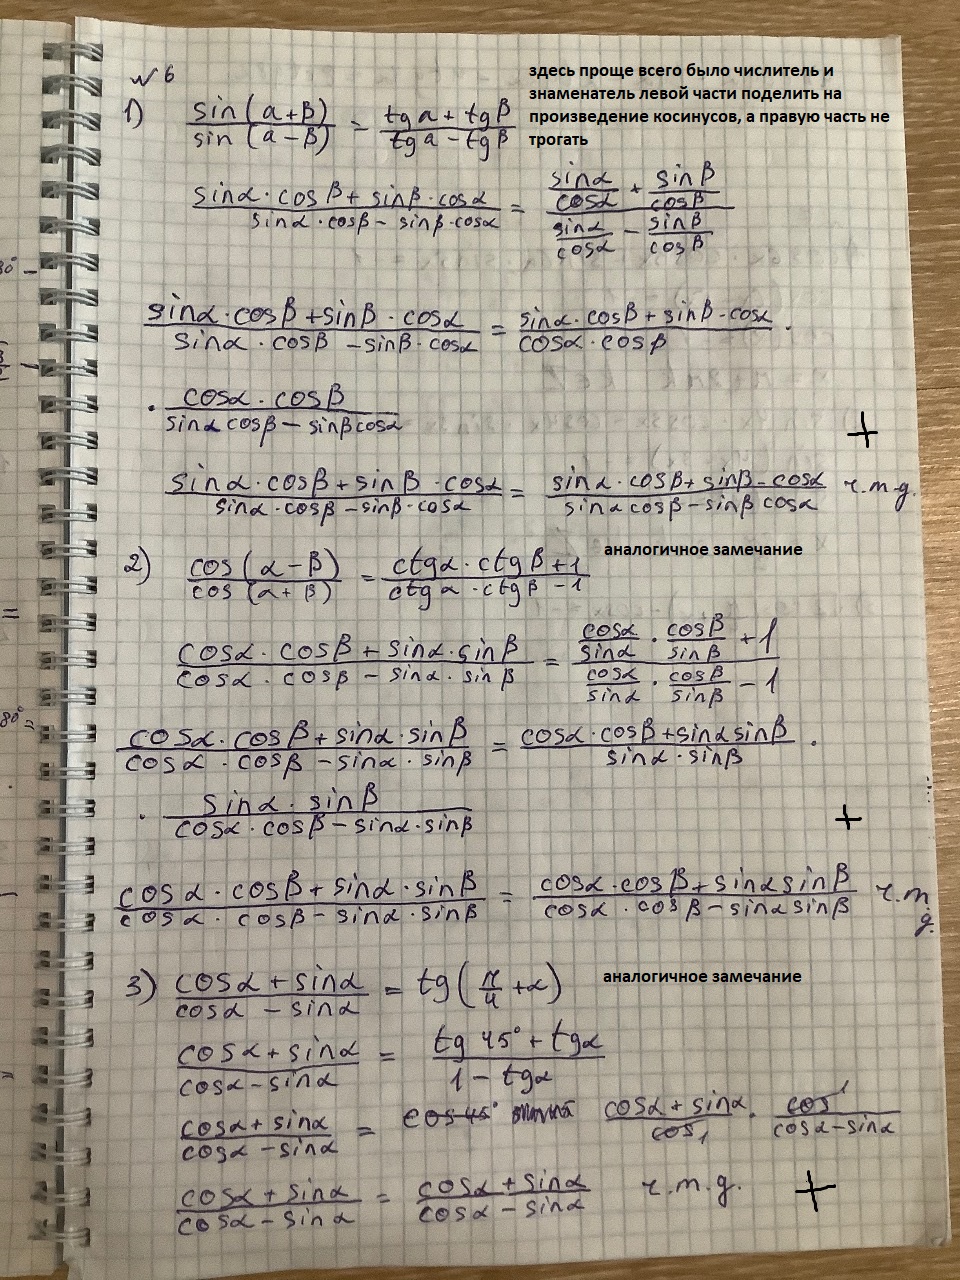 № 6
здесь проще всего было числитель и
знаменатель левой части поделить на
произведение косинусов, а правую часть не
трогать
1) sin(α+β)/sin(α−β) = (tgα + tgβ)/(tgα − tgβ)
(sinα·cosβ + sinβ·cosα)/(sinα·cosβ − sinβ·cosα) = (sinα/cosα + sinβ/cosβ)/(sinα/cosα − sinβ/cosβ)
(sinα·cosβ + sinβ·cosα)/(sinα·cosβ − sinβ·cosα) = (sinα·cosβ + sinβ·cosα)/(cosα·cosβ) ·
· (cosα·cosβ)/(sinα cosβ − sinβ cosα)
+
(sinα·cosβ + sinβ·cosα)/(sinα·cosβ − sinβ·cosα) = (sinα·cosβ + sinβ·cosα)/(sinα cosβ − sinβ cosα) ч.т.д.
аналогичное замечание
2) cos(α−β)/cos(α+β) = (ctgα·ctgβ + 1)/(ctgα·ctgβ − 1)
(cosα·cosβ + sinα·sinβ)/(cosα·cosβ − sinα·sinβ) = (cosα/sinα · cosβ/sinβ + 1)/(cosα/sinα · cosβ/sinβ − 1)
(cosα·cosβ + sinα·sinβ)/(cosα·cosβ − sinα·sinβ) = (cosα·cosβ + sinα sinβ)/(sinα·sinβ) ·
· (sinα·sinβ)/(cosα·cosβ − sinα·sinβ)
+
(cosα·cosβ + sinα·sinβ)/(cosα·cosβ − sinα·sinβ) = (cosα·cosβ + sinα sinβ)/(cosα·cosβ − sinα sinβ) ч.т.д.
3) (cosα + sinα)/(cosα − sinα) = tg(π/4 + α)
аналогичное замечание
(cosα + sinα)/(cosα − sinα) = (tg 45° + tgα)/(1 − tgα)
(cosα + sinα)/(cosα − sinα) = (cosα + sinα)/cos₁ · cos¹/(cosα − sinα)
(cosα + sinα)/(cosα − sinα) = (cosα + sinα)/(cosα − sinα) ч.т.д. +